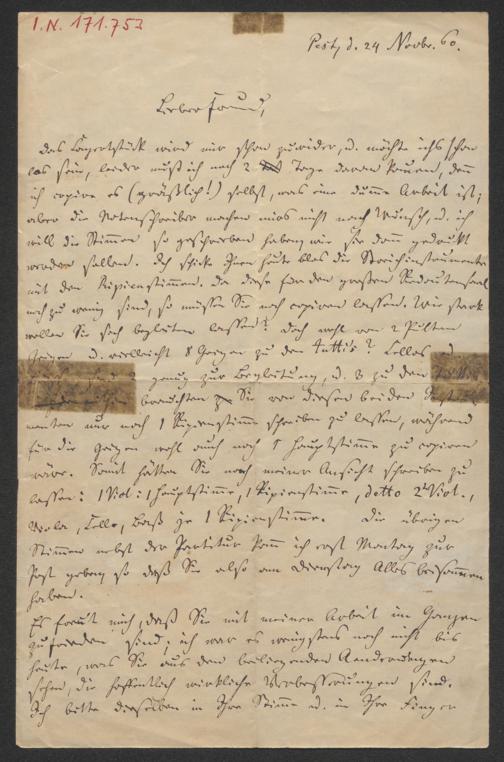 I.N. 171.753
Pest, d. 24 Novbr. 60.
Lieber Freund,
Das Conzertstück wird mir schon zuwider, u. möchte ichs schon
los sein, leider muß ich noch 2 Tage daran kauen, denn
ich copire es (gräßlich!) selbst, was eine dumme Arbeit ist;
aber die Notenschreiber machen mirs nicht nach Wunsch, u. ich
will die Stimmen so geschrieben haben, wie sie dann gedruckt
werden sollen. Ich schicke Ihnen heute blos die Streichinstrumente
mit den Ripienstimmen. Da diese für den großen Redoutensaal
noch zu wenig sind, so müssen Sie noch copiren lassen. Wie stark
wollen Sie sich begleiten lassen? Doch wohl von 2 Pulten
Geigen u. vielleicht 8 Geigen zu den Tutti's? Cellos
2 genug zur Begleitung, u. 3 zu den
brauchten Sie von diesen beiden
menten nur noch 1 Ripienstimme schreiben zu lassen, während
für die Geigen wohl auch noch 1 Hauptstimme zu copiren
wäre. Somit hätten Sie nach meiner Ansicht schreiben zu
lassen: 1 Viol: 1 Hauptstimme, 1 Ripienstimme, detto 2te Viol.,
Viola, Cello, Baß je 1 Ripienstimme. Die übrigen
Stimmen nebst der Partitur kann ich erst Montag zur
Post geben, so daß Sie also am Dienstag Alles beisammen
haben.
Es freut mich, daß Sie mit meiner Arbeit im Ganzen
zufrieden sind; ich war es wenigstens noch nicht bis
heute, was Sie aus den beiliegenden Aenderungen
sehen, die hoffentlich wirkliche Verbesserungen sind.
Ich bitte dieselben in Ihre Stimme u. in Ihre Finger